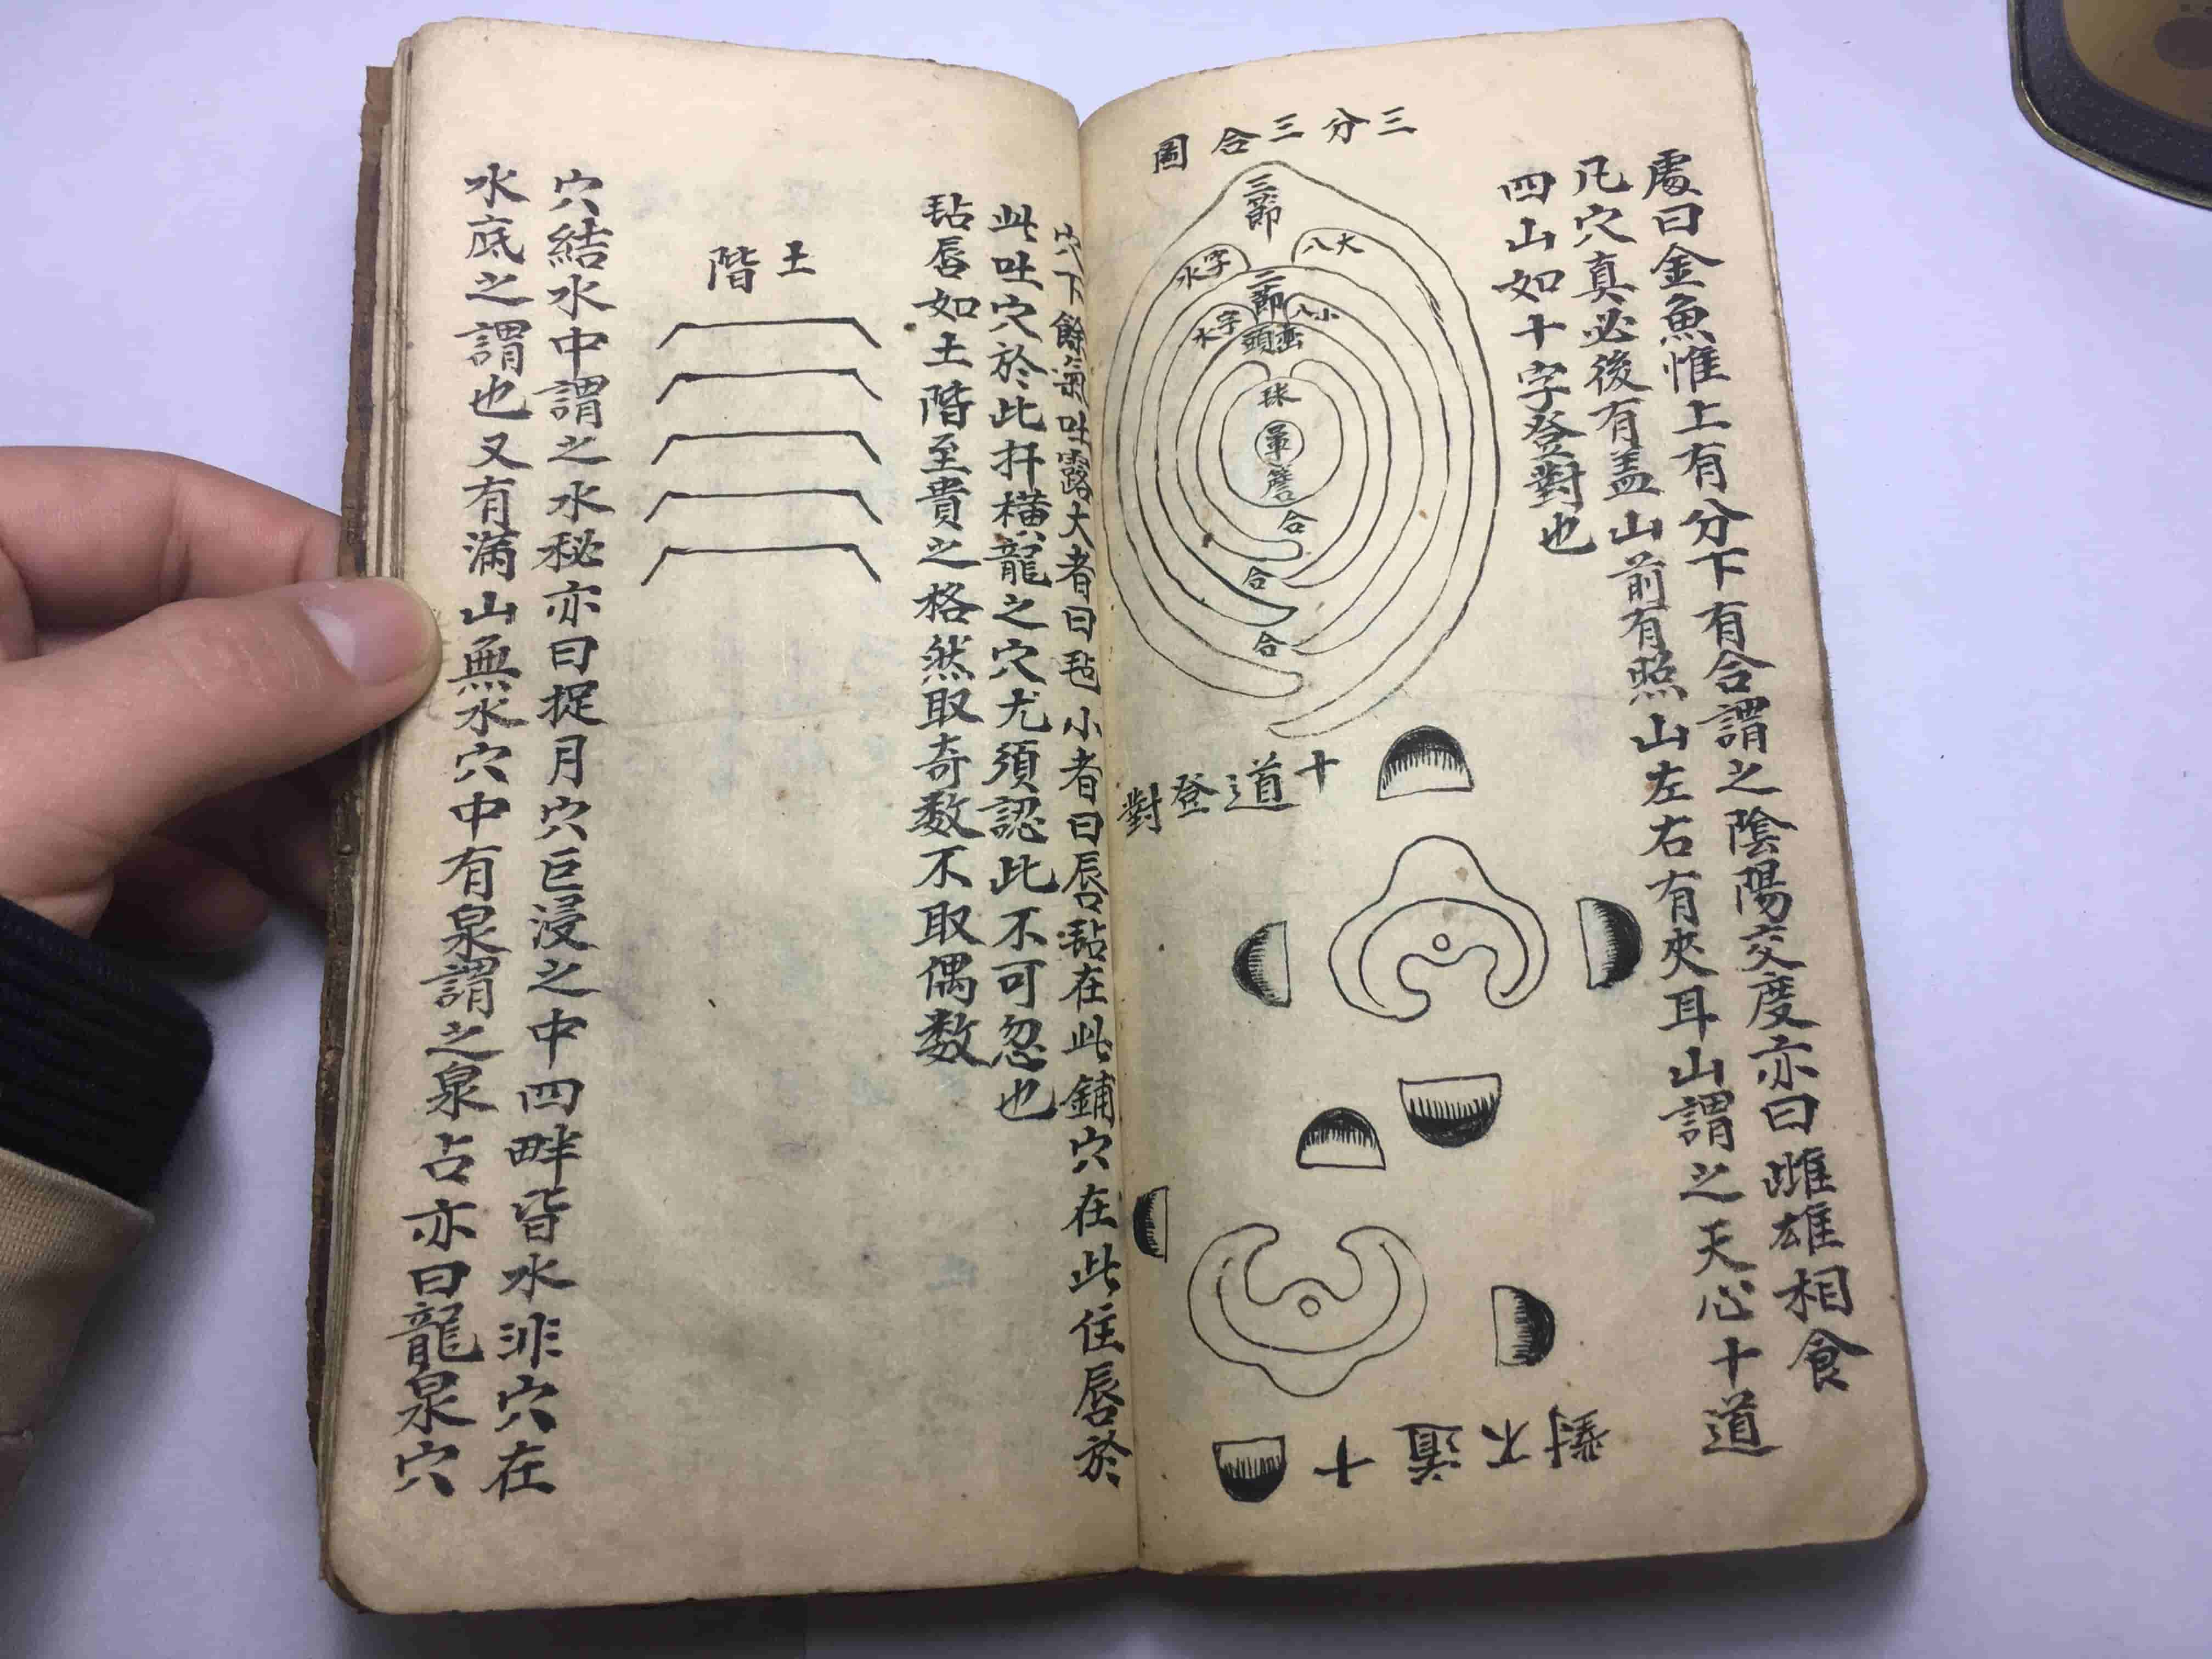 處曰金魚惟上有分下有合謂之陰陽交度亦曰雌雄相食
凡穴真必後有盖山前有照山左右有夾耳山謂之天心十道
四山如十字登對也
三分三合圖
三節
大八
字水
二節
小八
字水
巒頭
球
暈
簷
合
合
合
十道登對
十道不對
穴下餘氣吐露大者曰毡小者曰唇毡在此鋪穴在此住唇於
此吐穴於此扦橫龍之穴尤須認此不可忽也
毡唇如土階至貴之格然取奇数不取偶数
土階
穴結水中謂之水秘亦曰捉月穴巨浸之中四畔皆水非穴在
水底之謂也又有滿山無水穴中有泉謂之泉占亦曰龍泉穴